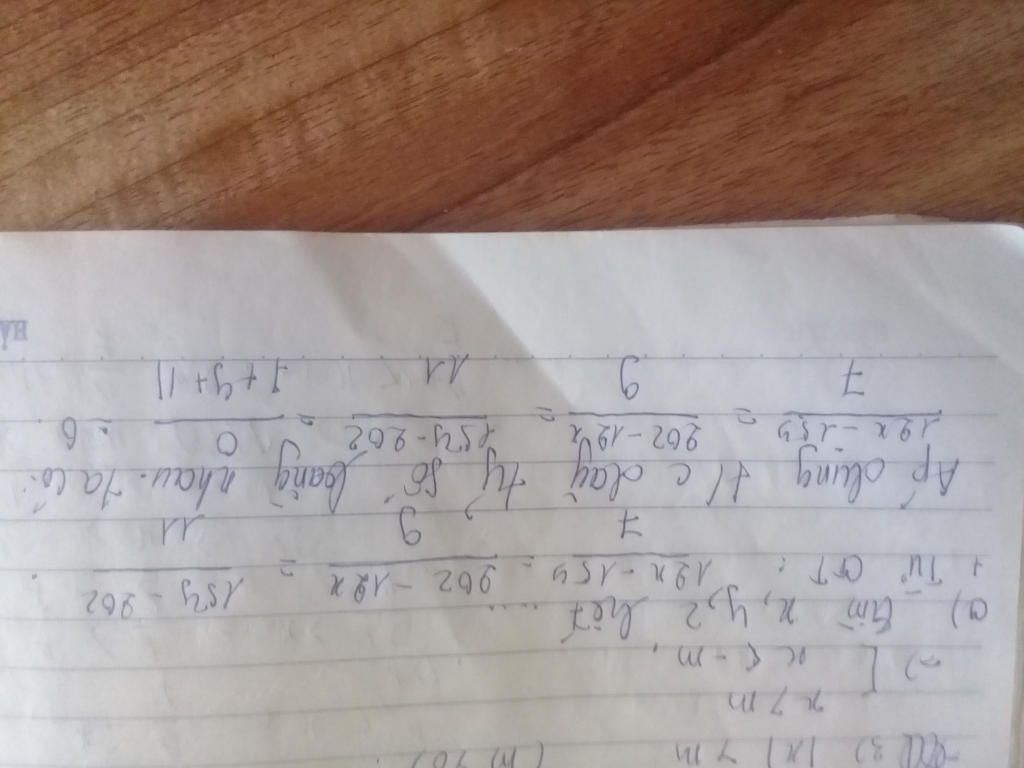 3) |x| > m (m > 0).
x > m
=) [ x < -m.
a) Tìm x, y, z biết ....
+ Từ GT: 12x - 15y / 7 = 20z - 12x / 9 = 15y - 20z / 11 .
Áp dụng t/c dãy tỷ số bằng nhau. Ta có:
12x - 15y / 7 = 20z - 12x / 9 = 15y - 20z / 11 = 0 / 7 + 9 + 11 = 0